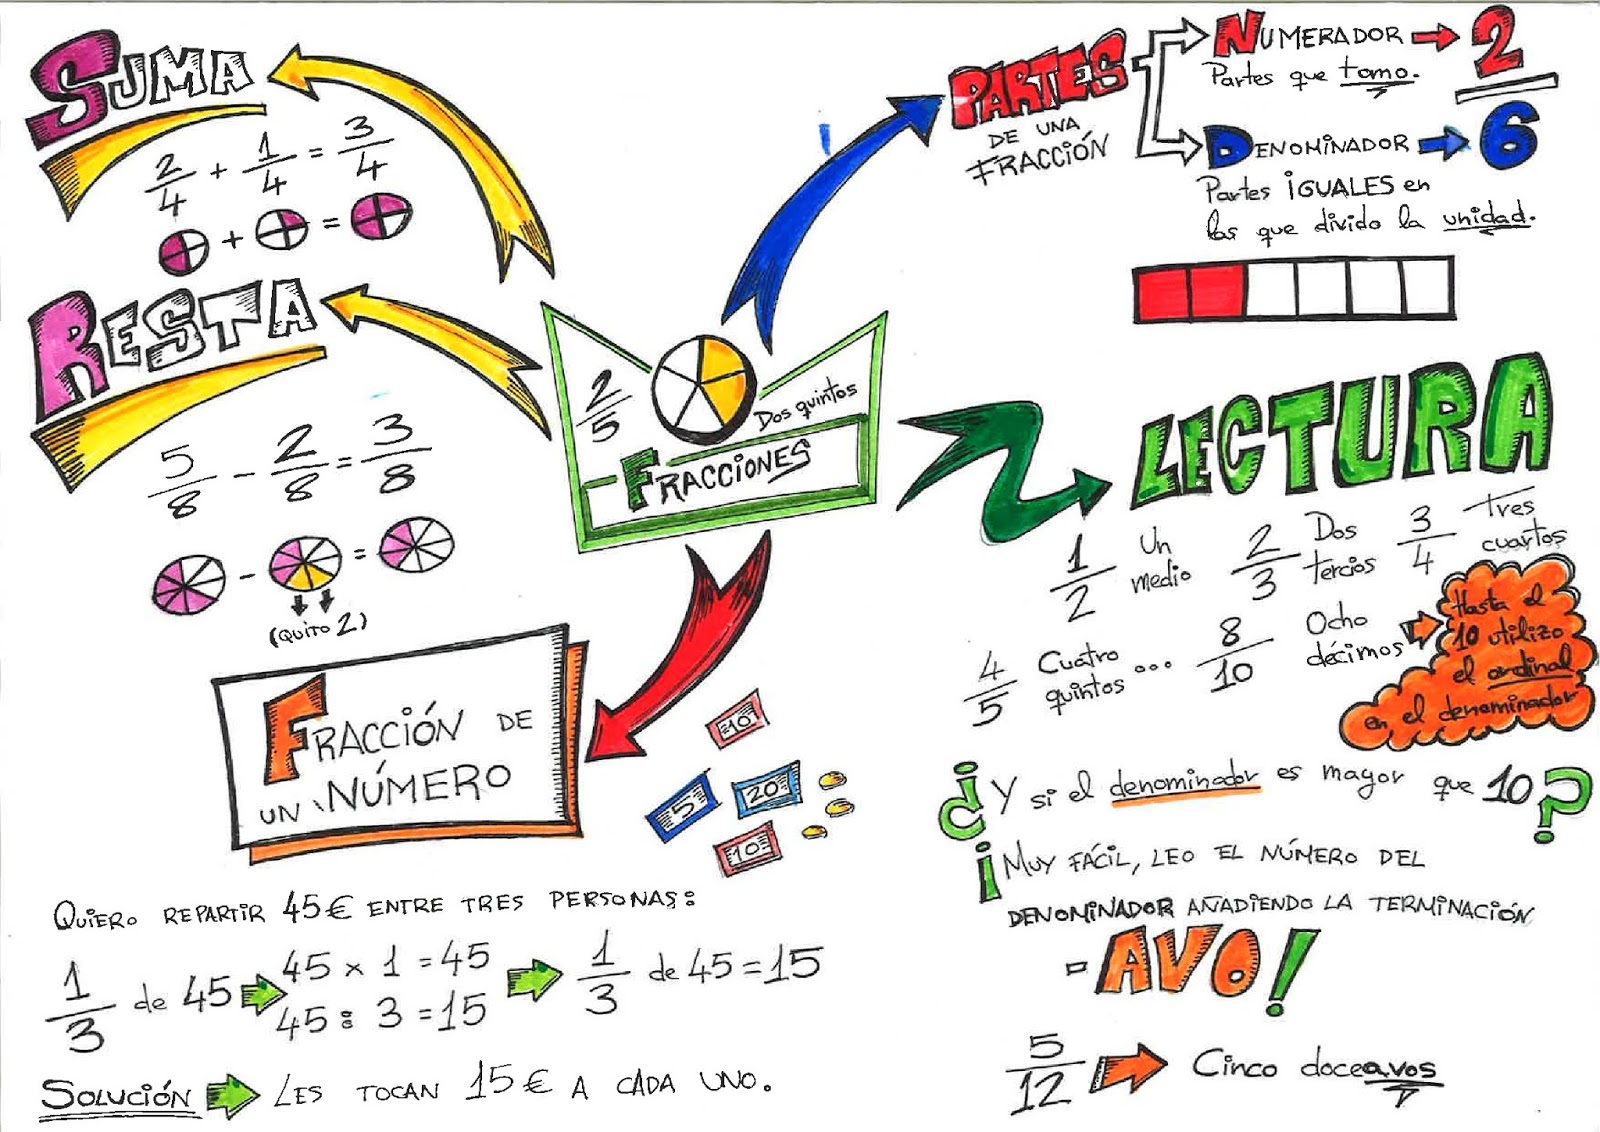 SUMA
2/4 + 1/4 = 3/4
+ =
RESTA
5/8 - 2/8 = 3/8
- =
(QUITO 2)
2/5
Dos quintos
FRACCIONES
PARTES
DE UNA
FRACCIÓN
NUMERADOR 2
Partes que tomo.
DENOMINADOR 6
Partes iGUALES en
las que divido la unidad.
LECTURA
1/2 Un medio 2/3 Dos tercios 3/4 Tres cuartos
4/5 Cuatro quintos ... 8/10 Ocho décimos
Hasta el
10 utilizo
el ordinal
en el denominador
¿Y si el denominador es mayor que 10?
¡MUY FÁCIL, LEO EL NÚMERO DEL
DENOMINADOR AÑADIENDO LA TERMINACIÓN
-AVO!
5/12 Cinco doceavos
FRACCIÓN DE
UN NÚMERO
10
5
20
10
QUIERO REPARTIR 45€ ENTRE TRES PERSONAS:
1/3 de 45
45 x 1 = 45
45 : 3 = 15
1/3 de 45 = 15
SOLUCIÓN LES TOCAN 15€ A CADA UNO.